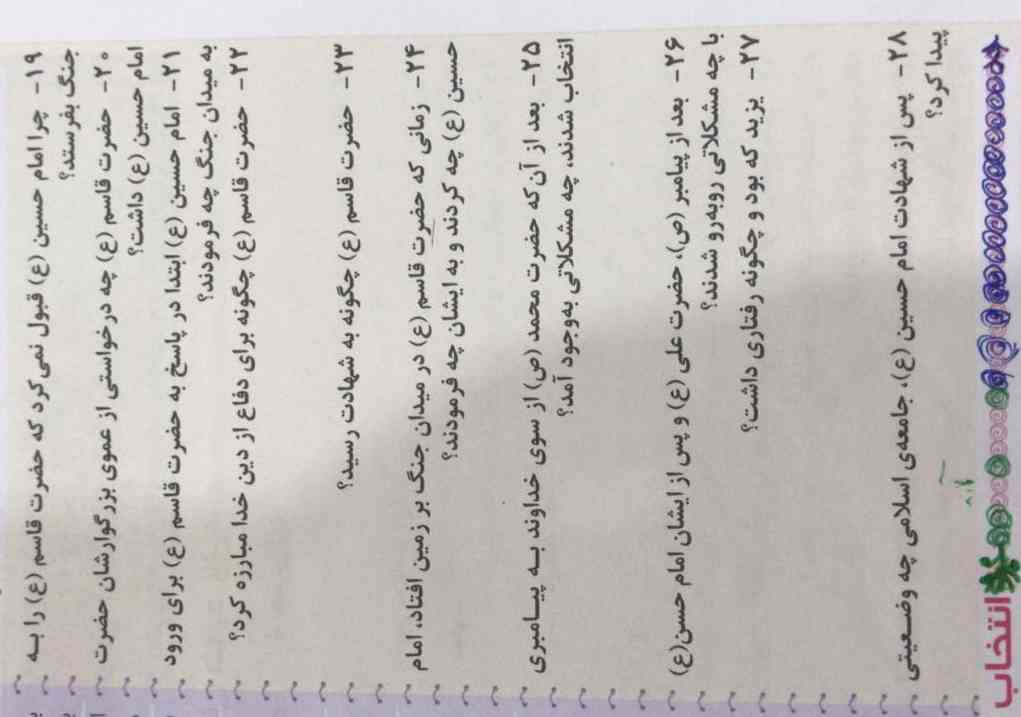 ۱۹- چرا امام حسین (ع) قبول نمی‌کرد که حضرت قاسم (ع) را به
جنگ بفرستد؟
۲۰- حضرت قاسم (ع) چه درخواستی از عموی بزرگوارشان حضرت
امام حسین (ع) داشت؟
۲۱- امام حسین (ع) ابتدا در پاسخ به حضرت قاسم (ع) برای ورود
به میدان جنگ چه فرمودند؟
۲۲- حضرت قاسم (ع) چگونه برای دفاع از دین خدا مبارزه کرد؟
۲۳- حضرت قاسم (ع) چگونه به شهادت رسید؟
۲۴- زمانی که حضرت قاسم (ع) در میدان جنگ بر زمین افتاد، امام
حسین (ع) چه کردند و به ایشان چه فرمودند؟
۲۵- بعد از آن‌که حضرت محمد (ص) از سوی خداوند به پیامبری
انتخاب شدند، چه مشکلاتی به‌وجود آمد؟
۲۶- بعد از پیامبر (ص)، حضرت علی (ع) و پس از ایشان امام حسن(ع)
با چه مشکلاتی روبه‌رو شدند؟
۲۷- یزید که بود و چگونه رفتاری داشت؟
۲۸- پس از شهادت امام حسین (ع)، جامعه‌ی اسلامی چه وضعیتی
پیدا کرد؟
انتخاب